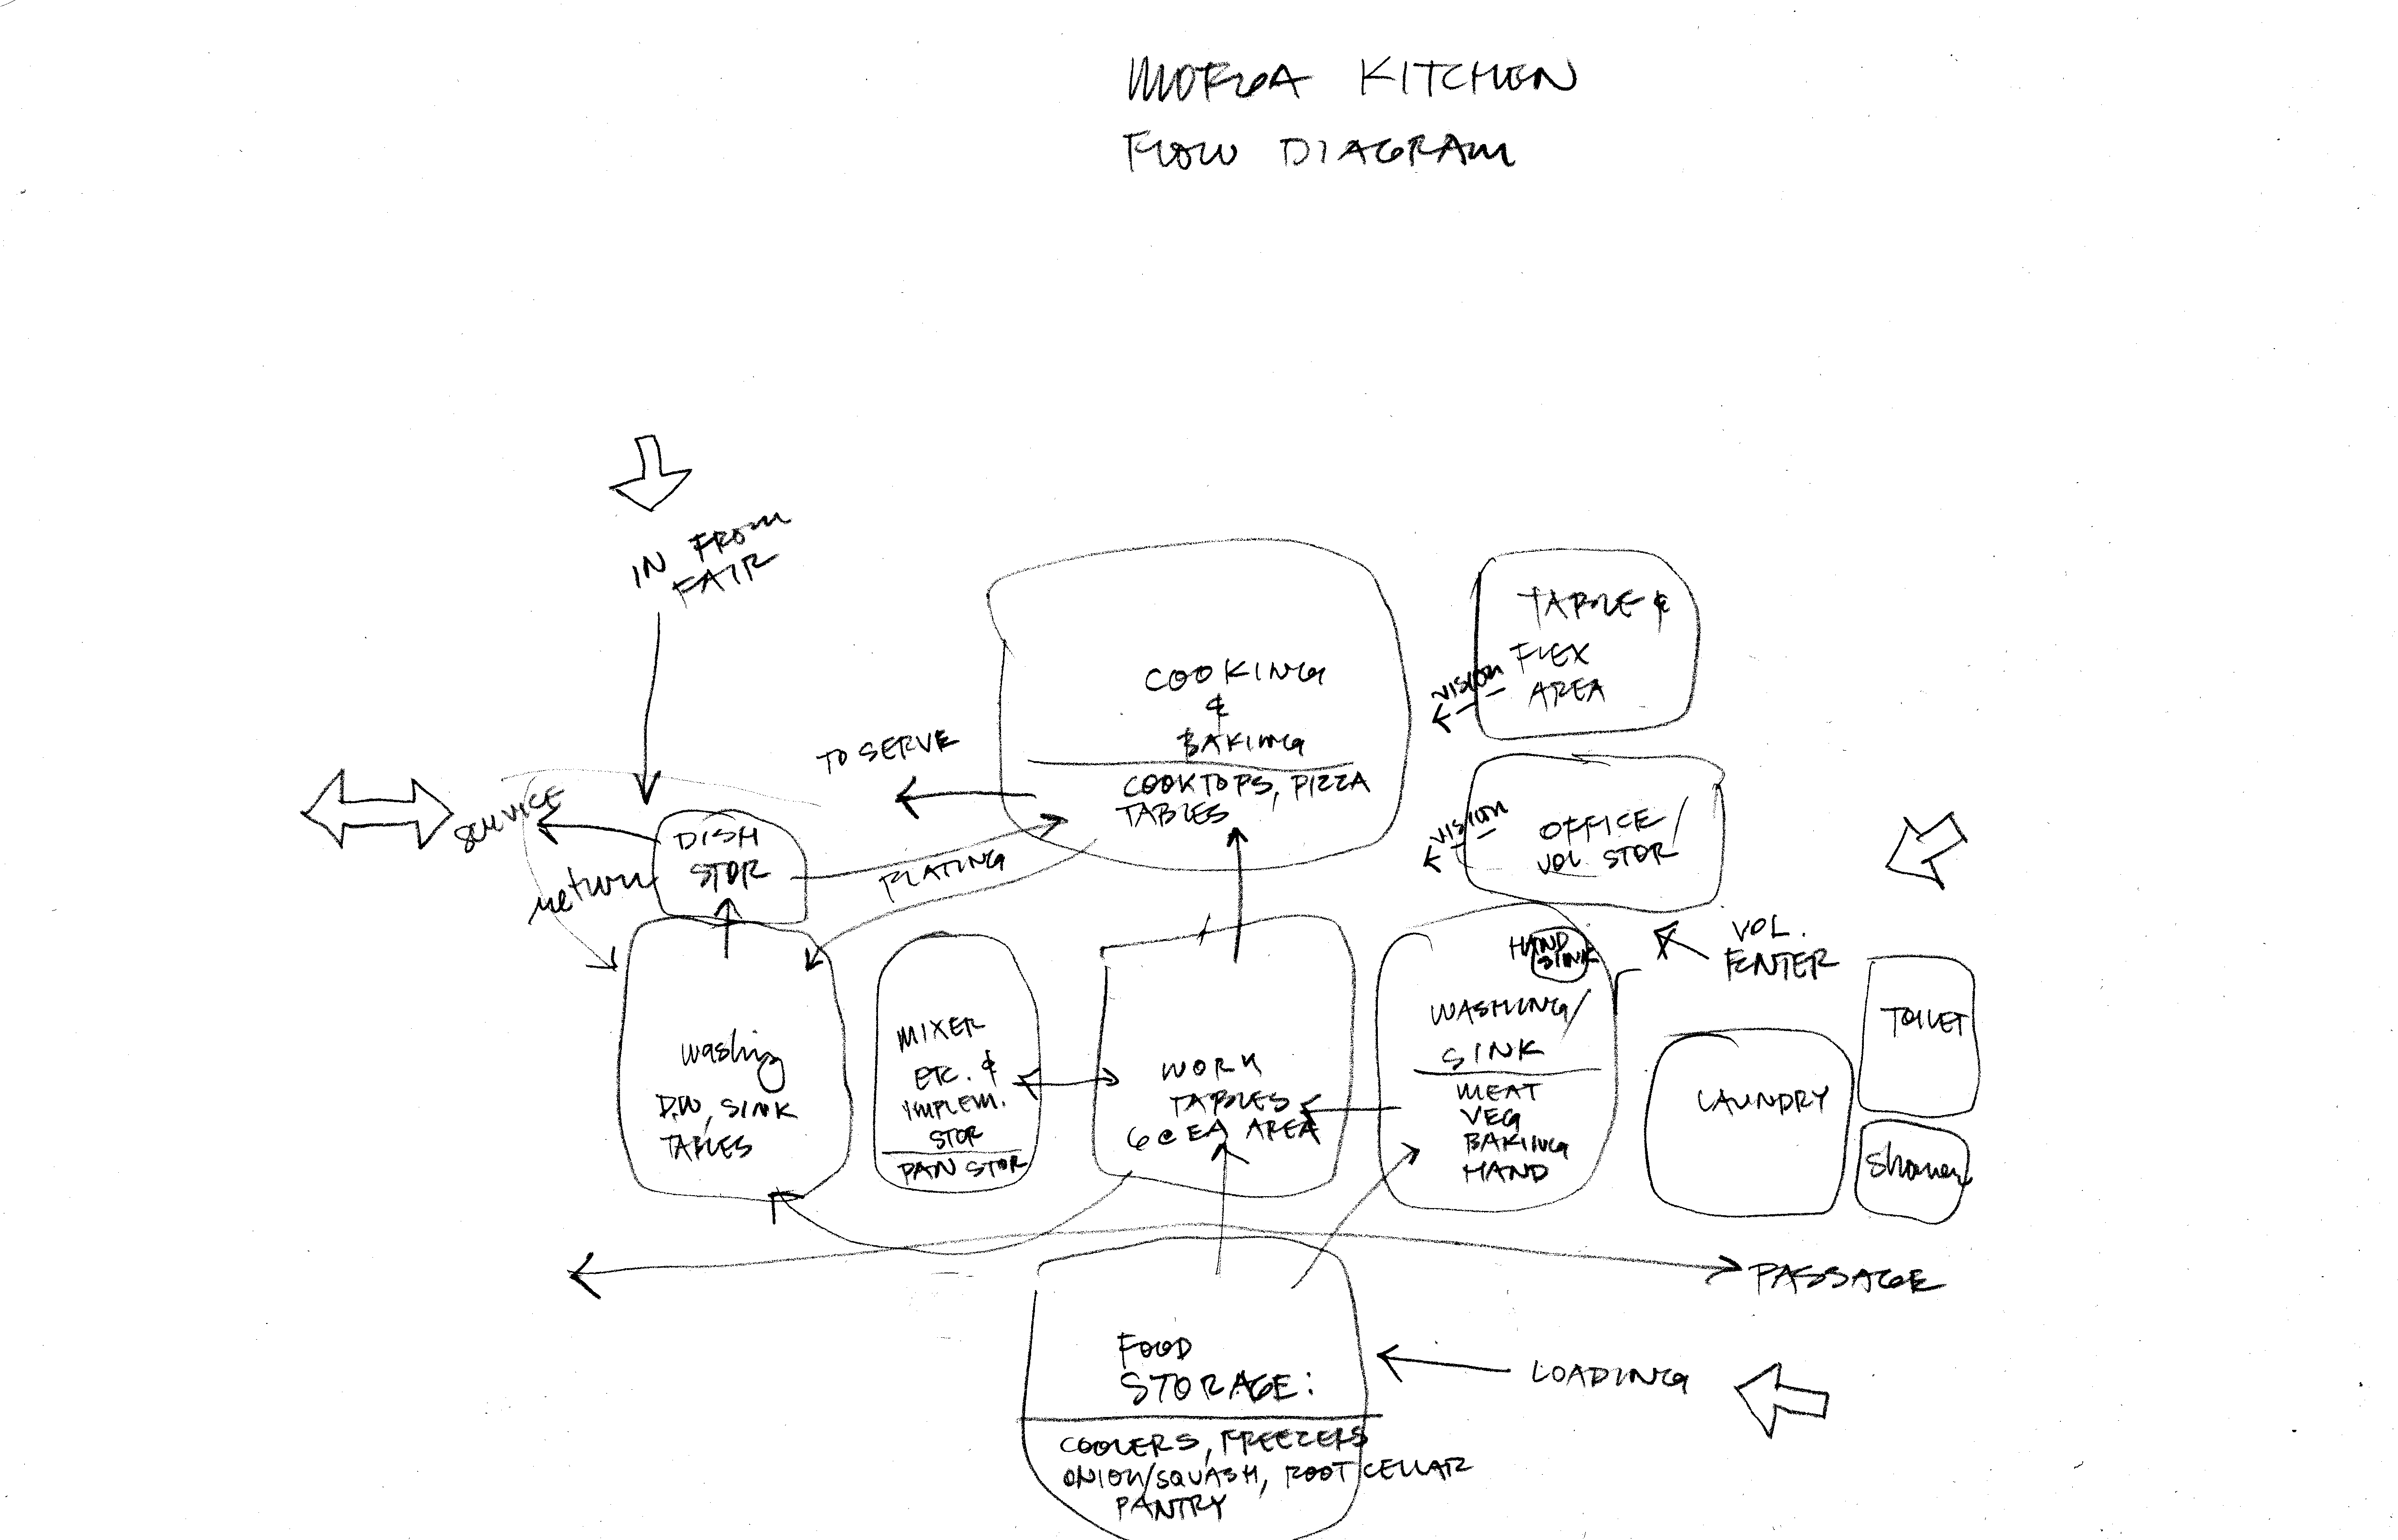 MOFGA KITCHEN
FLOW DIAGRAM
IN FROM
FAIR
TABLE &
FLEX
AREA
VISION
COOKING
&
BAKING
COOKTOPS, PIZZA
TABLES
TO SERVE
SERVICE
return
DISH
STOR
PLATING
VISION
OFFICE/
VOL. STOR
VOL.
ENTER
HAND
SINK
WASHING/
SINK
MEAT
VEG
BAKING
HAND
washing
D.W, SINK
TABLES
MIXER
ETC. &
IMPLEM.
STOR
PAN STOR
WORK
TABLES
6 @ EA AREA
LAUNDRY
TOILET
Shower
PASSAGE
FOOD
STORAGE:
COOLERS, FREEZERS
ONION/SQUASH, ROOT CELLAR
PANTRY
LOADING